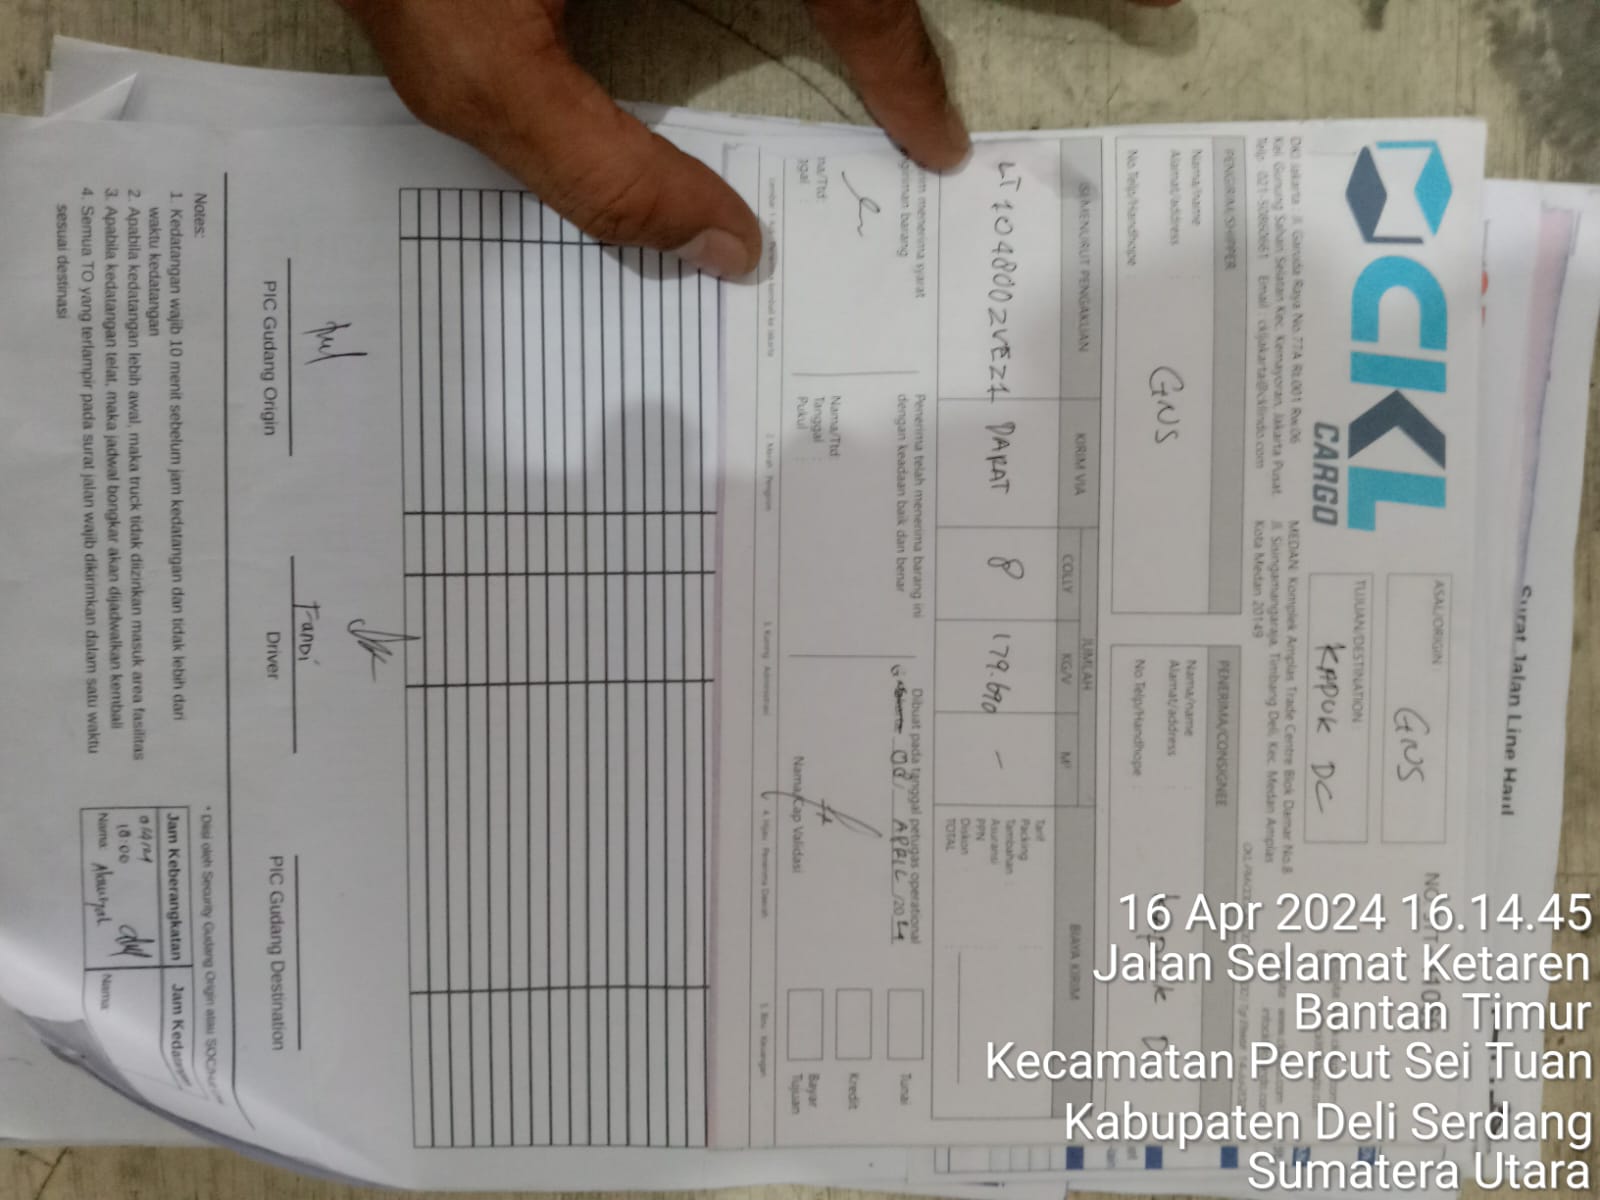 Surat Jalan Line Haul
CKL
CARGO
DKI Jakarta : Jl. Garuda Raya No.77A Rt.001 Rw.06
Kel. Gunung Sahari Selatan Kec. Kemayoran, Jakarta Pusat
Telp. 021-5086061 Email : ckljakarta@cklindo.com
MEDAN: Komplek Amplas Trade Centre Blok Damar No.8
Jl. Sisingamangaraja, Timbang Deli, Kec. Medan Amplas
Kota Medan 20149
ASAL/ORIGIN :
GNS
TUJUAN/DESTINATION :
KAPUK DC
PENGIRIM/SHIPPER
Nama/name :
Alamat/address :
No.Telp/Handhope :
GNS
PENERIMA/CONSIGNEE
Nama/name :
Alamat/address :
No.Telp/Handhope :
ISI MENURUT PENGAKUAN
KIRIM VIA
JUMLAH
COLLY
KG/V
M³
BIAYA KIRIM
LT1048002VEZ1
DARAT
8
179.690
-
Tarif :
Packing :
Tambahan :
Asuransi :
PPN :
Diskon :
TOTAL :
menerima syarat
pengiriman barang
Penerima telah menerima barang ini
dengan keadaan baik dan benar
Nama/Ttd :
Tanggal :
Pukul :
Dibuat pada tanggal petugas operational
08 / APRIL / 2024
Nama/Cap Validasi
Tunai
Kredit
Bayar
Tujuan
2. Merah: Pengirim
3. Kuning: Administrasi
4. Hijau: Penerima Daerah
5. Biru: Keuangan
PIC Gudang Origin
FANDI
Driver
PIC Gudang Destination
Notes:
1. Kedatangan wajib 10 menit sebelum jam kedatangan dan tidak lebih dari
waktu kedatangan
2. Apabila kedatangan lebih awal, maka truck tidak diizinkan masuk area fasilitas
3. Apabila kedatangan telat, maka jadwal bongkar akan dijadwalkan kembali
4. Semua TO yang terlampir pada surat jalan wajib dikirimkan dalam satu waktu
sesuai destinasi
* Diisi oleh Security Gudang Origin atau SOC
Jam Keberangkatan
18:00
Nama:
Nama:
16 Apr 2024 16.14.45
Jalan Selamat Ketaren
Bantan Timur
Kecamatan Percut Sei Tuan
Kabupaten Deli Serdang
Sumatera Utara